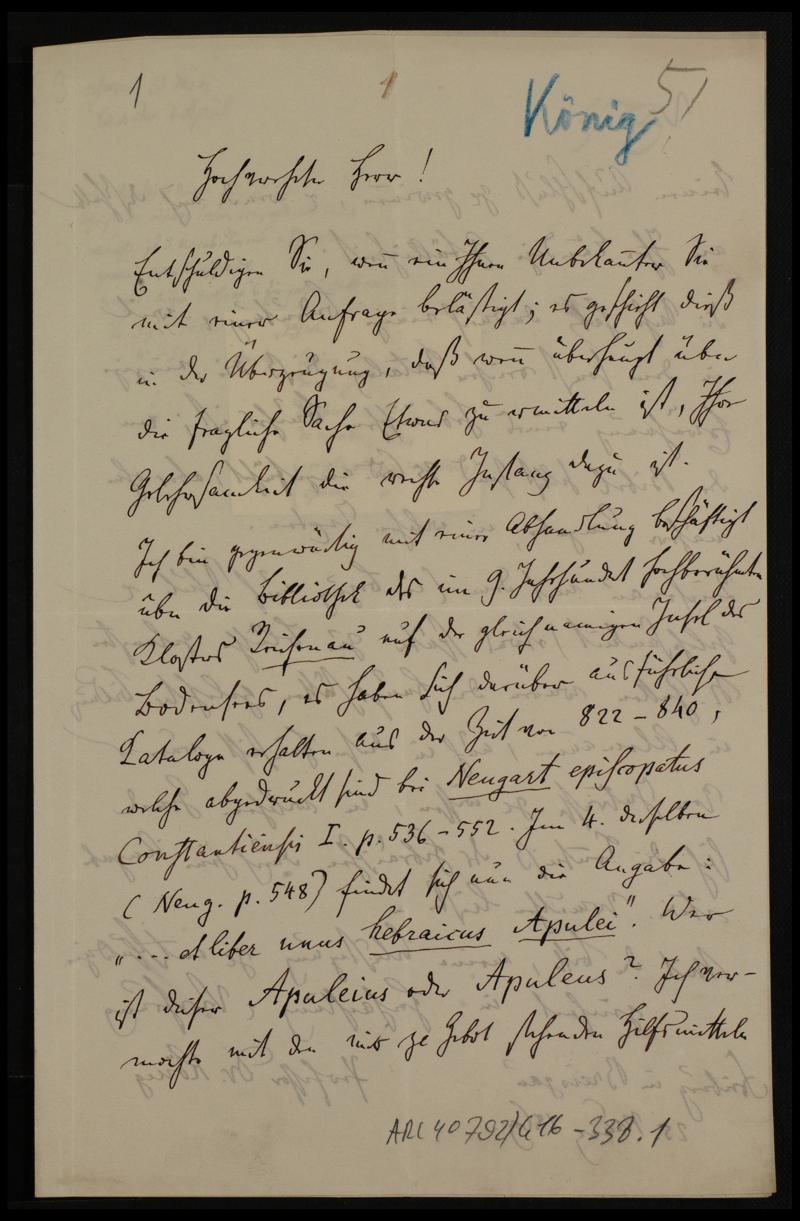 1 1 König 51
Hochverehrter Herr!
Entschuldigen Sie, wen̄ ein Ihnen Unbekan̄ter Sie
mit einer Anfrage belästigt; es geschieht dieß
in der Überzeugung, daß wen̄ überhaupt über
die fragliche Sache Etwas zu ermitteln ist, Ihre
Gelehrsamkeit die rechte Instanz dazu ist.
Ich bin gegenwärtig mit einer Abhandlung beschäftigt
über die Bibliothek des im 9. Jahrhundert hochberühmten
Klosters Reichenau auf der gleichnamigen Insel des
Bodensees, es haben sich darüber ausführliche
Kataloge erhalten aus der Zeit von 822 – 840,
welche abgedruckt sind bei Neugart episcopatus
Constantiensis I. p. 536 – 552. Im 4. derselben
(Neug. p. 548) findet sich nun die Angabe:
„... et liber unus hebraicus Apulei". Wer
ist dieser Apuleius oder Apuleus? Ich ver-
mochte mit den mir zu Gebot stehenden Hilfsmitteln
ARC 4o 792/G16 - 338.1